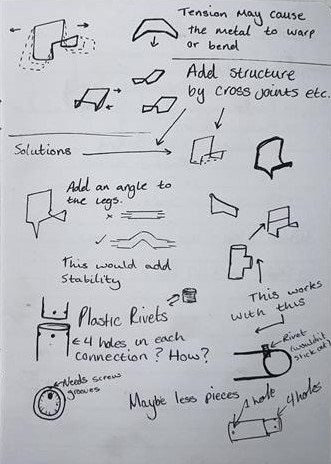 Tension May cause
the metal to warp
or bend
Add structure
by cross joints etc.
Solutions
Add an angle to
the legs.
This would add
Stability
This works
with this
Plastic Rivets
4 holes in each
connection? How?
Rivet
(wouldn't
stick out)
Needs screw
grooves
Maybe less pieces
1 hole
4 holes